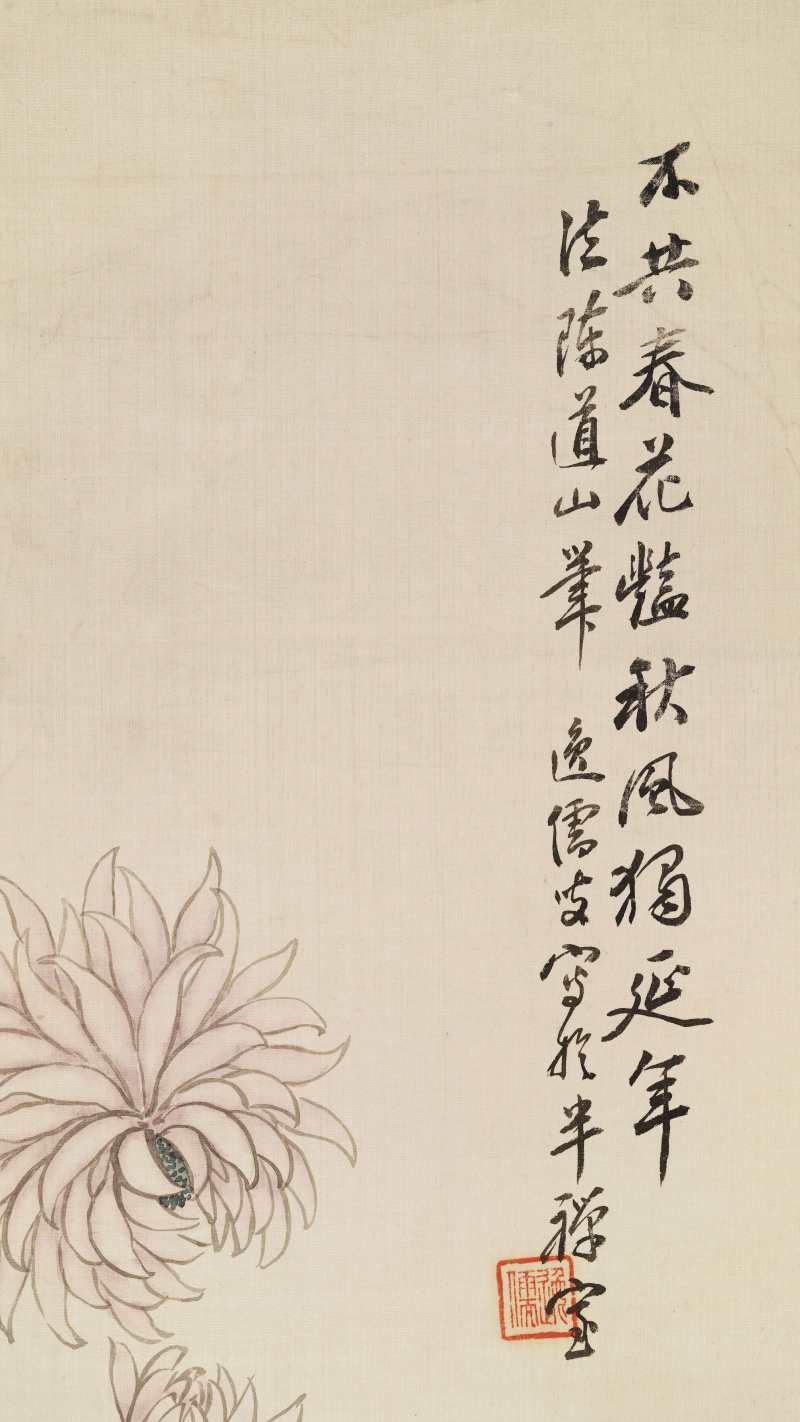 不共春花豔秋風獨延年
法陳道山筆 逸儒岐寫於半禪室
逸儒